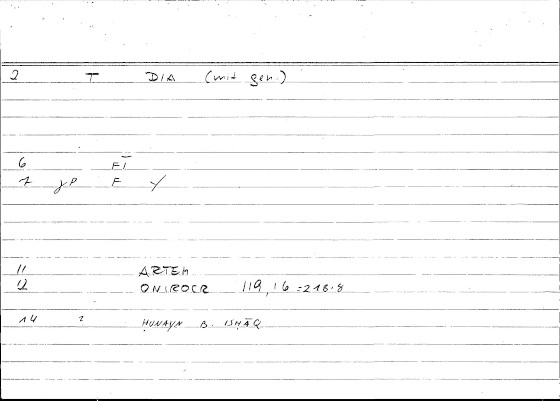 2 T DIA (mit gen.)
6 FĪ
7 γP F Y
11 ARTEM
12 ONIROCR 119,16 = 218.8
14 2 ḤUNAYN B. ISḤĀQ